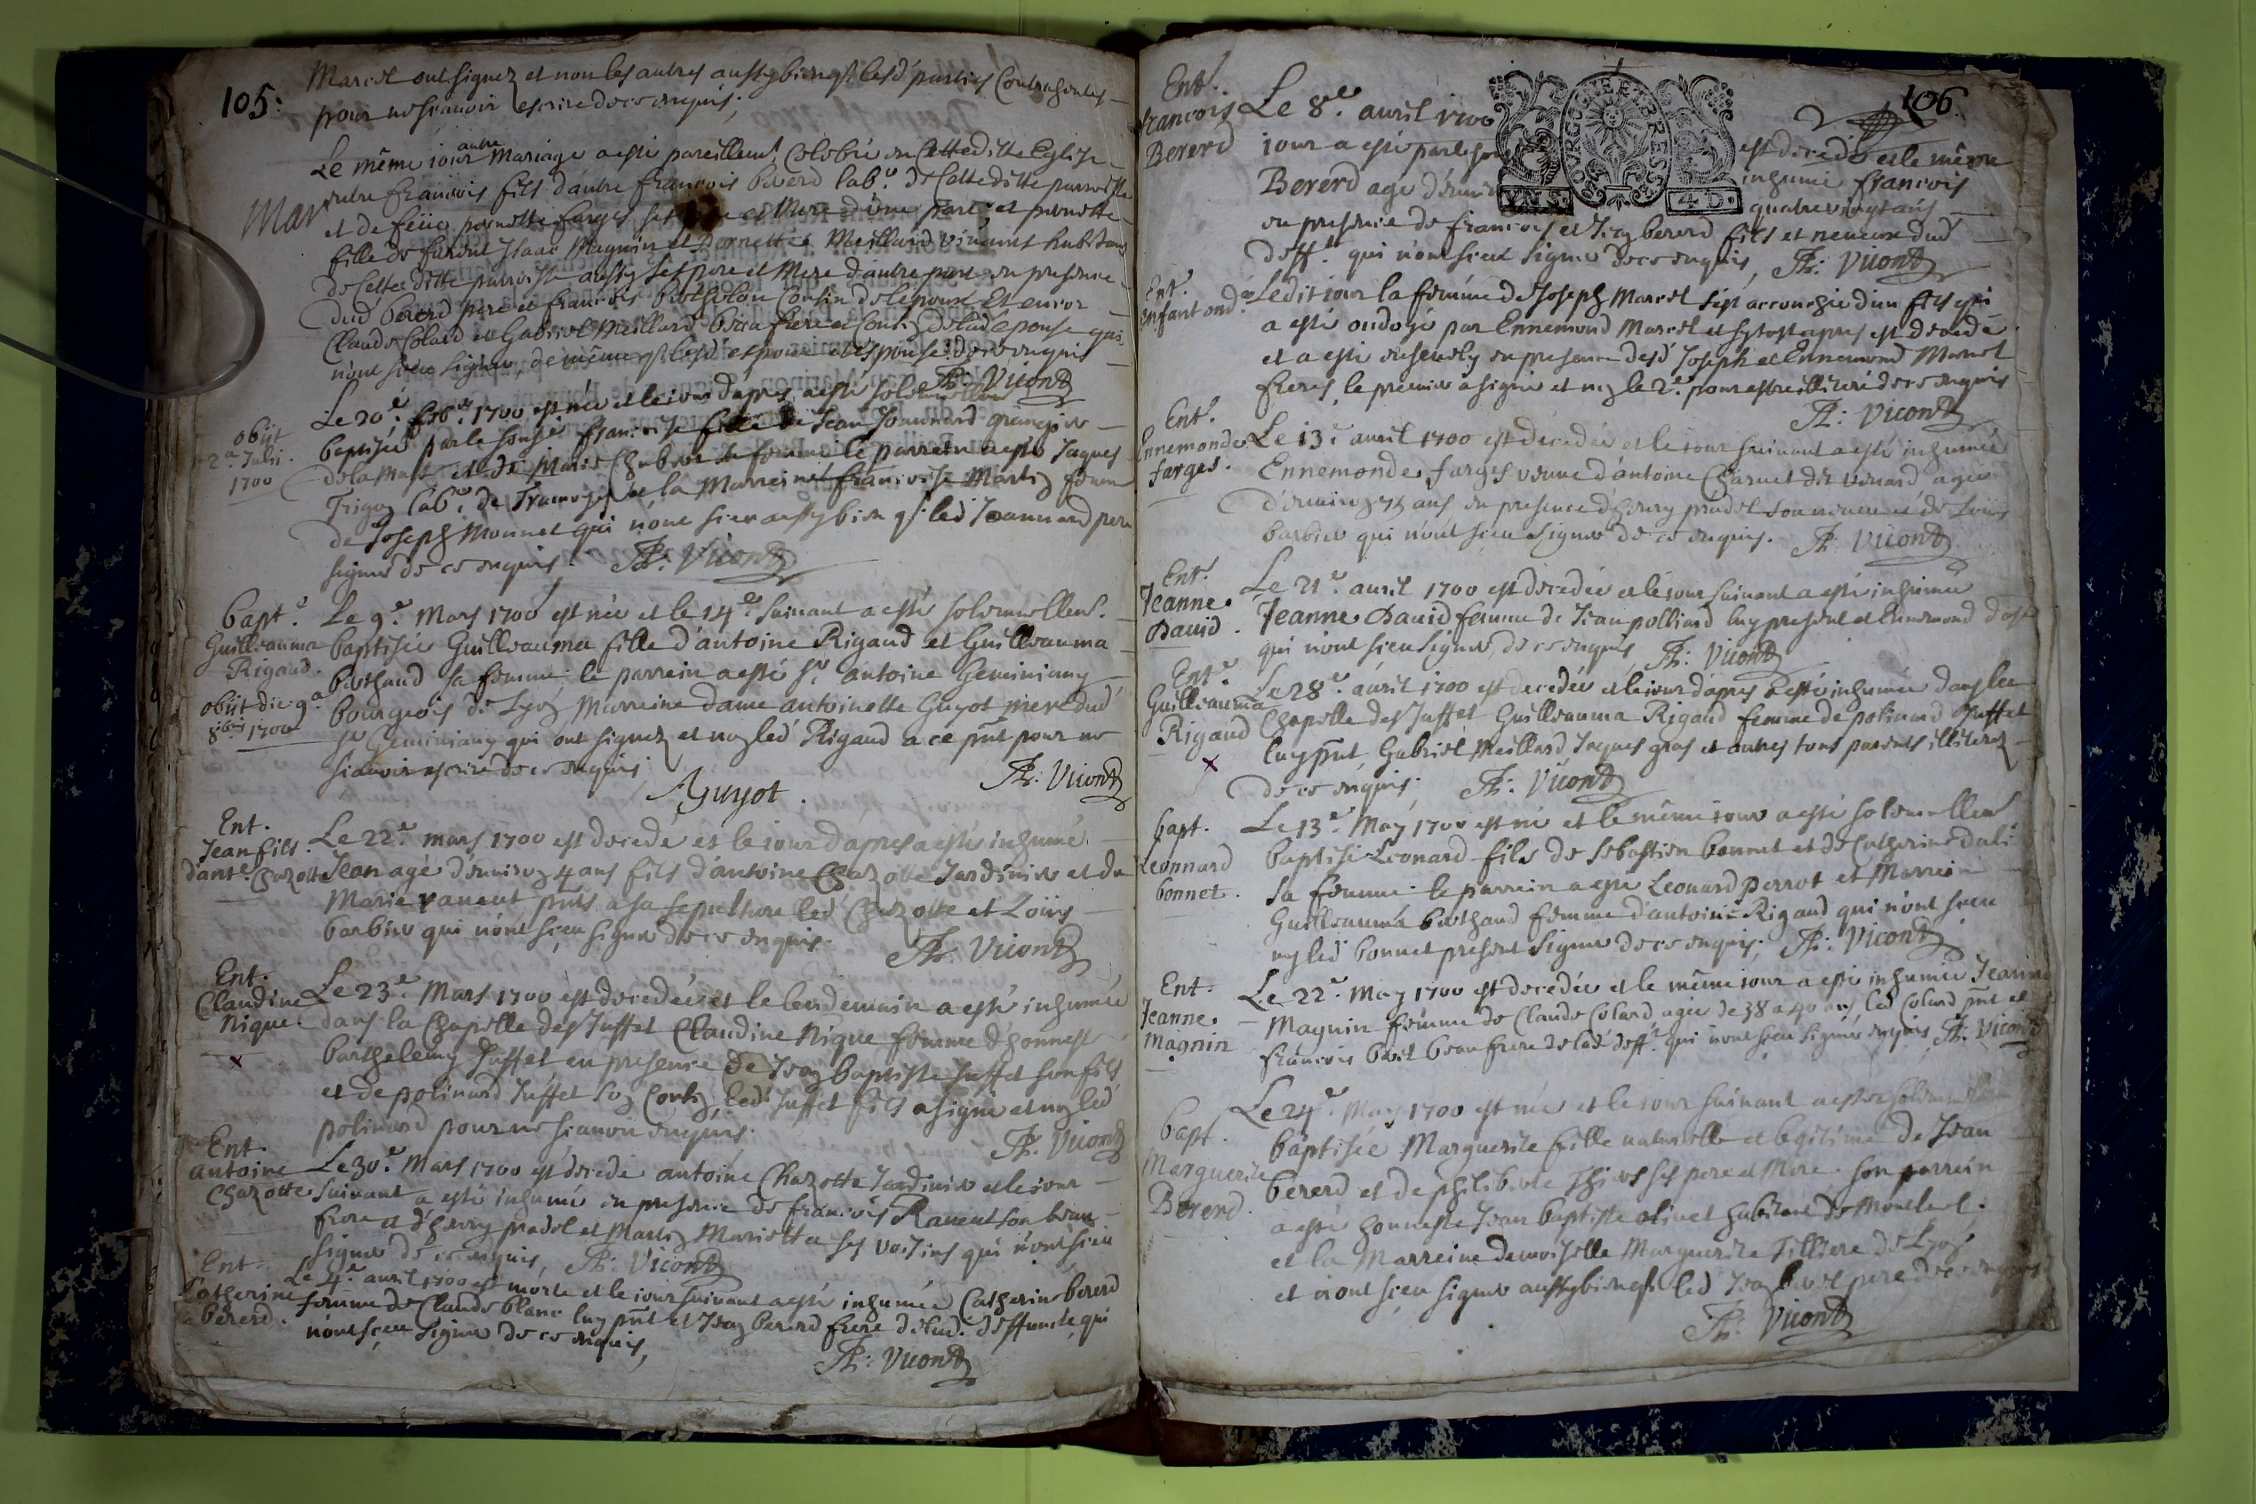 105:
Marcel ont signez et non les autres aussy bien qe lesd parties Contrahentes
pour ne scavoir escrire de ce enquis;
Mar
Le même jour autre Mariage a esté pareillemt Celebré en Cette ditte Eglise
entre francois fils d'autre francois bererd labr de Cette ditte parroisse
et de feüe pernette farges ses et Mere d'une part et pernette
fille de furent Isaac Magnin et Pernette Meillard vivants habitans
de Cette ditte parroisse aussy ses pere et Mere d'autre part en presence
dud bererd pere et francois berthelon Cousin de lepoux Et encor
Claude Colard et Gabriel Meillard beau frere et Cousin de lad epouse qui
n'ont sceu signer, de même qe lesd epoux et espouse de ce enquis
P: Vicond
obijt
2a Julii
1700
Le 20e febr 1700 est née et le jour d'apres a esté solemnellemt
baptisée par le soussé francoise fille de Jean Joannard grangier
de la et de Marie Chabrier sa femme le parrein a esté Jaques
Trigon labr de Tramoyes et la Marreine francoise Martin femme
de Joseph Monnet qui n'ont sceu aussy bien qe led Joannard pere
signer de ce enquis. P: Vicond
Bapte
Guilleauma
Rigaud.
obijt die 9a
8bris 1700
Le 9e Mars 1700 est née et le 14e suivant a esté solemnellemt
baptisée Guilleauma fille d'antoine Rigaud et Guilleauma
berthaud sa femme; le parrein a esté sr antoine Geminiany
bourgeois de Lyon Marreine dame antoinette Guyot mere dud
sr Geminiany qui ont signez et non led Rigaud a ce pnt pour ne
scavoir escrire de ce enquis
AGuyot. P: Vicond
Ent.
Jean fils
d'ante Chazotte
Le 22e mars 1700 est decedé et le jour d'apres a esté inhumé
Jean agé d'environ 4 ans fils d'antoine Chazotte Jardinier et de
Marie ranent pnts a sa sepulture led Chazotte et Loüis
barbier qui n'ont sceu signer de ce enquis.
P: Vicond
Ent.
Claudine
Nique.
x
Le 23e Mars 1700 est decedée et le lendemain a esté inhumée
dans la Chapelle des Juffet Claudine Nique femme d'honneste
barthelemy Juffet en presence de Jean baptiste Juffet son fils
et de polinard Juffet son Cousin, led Juffet fils a signé et non led
polinard pour ne scavoir enquis.
P: Vicond
Ent.
antoine
Chazotte
Le 30e Mars 1700 est decedé antoine Chazotte Jardinier et le jour
suivant a esté inhumé en presence de francois Ranent son beau
frere et d'henry pradel et Martin Mariotte ses voisins qui n'ont sceu
signer de ce enquis, P: Vicond
Ent.
Catherine
bererd.
Le 4e avril 1700 est morte et le jour suivant a esté inhumée Catherine bererd
femme de Claude blanc luy pnt et Jean bererd frere de lad. deffuncte, qui
n'ont sceu signer de ce enquis,
P: Vicond
106
GEN. BOURG EN BRESSE
VN S. 4 D.
Ent.
francois
Bererd
Le 8e avril 1700 est decedé et le même
jour a esté par le inhumé francois
Bererd agé d'environ quatre vingt ans
en presence de francois et Jean bererd fils et neveux dud
deff.t qui n'ont sceu signer de ce enquis, P: Vicond
Ent.
enfant ond.é
Ledit jour la femme de Joseph Marcel s'est accouchée d'un fils qui
a esté ondoyé par Ennemond Marcel et sytost apres est decedé
et a esté ensevely en presence desd Joseph et Ennemond Marcel
freres, le premier a signé et non le 2e pour estre illiteré de ce enquis
P: Vicond
Ent.
Ennemonde
farges.
Le 13e avril 1700 est decedée et le jour suivant a esté inhumée
Ennemonde farges veuve d'antoine Charnet dit venard agée
d'environ 75 ans en presence d'henry pradel son neveu et de Loüis
barbier qui n'ont sceu signer de ce enquis. P: Vicond
Ent.
Jeanne
David.
Le 21e avril 1700 est decedée et le jour suivant a esté inhumée
Jeanne David femme de Jean polliard luy present et Ennemond
qui n'ont sceu signer, de ce enquis P: Vicond
Ent.
Guilleauma
Rigaud
x
Le 28e avril 1700 est decedée et le jour d'apres a esté inhumée dans la
Chapelle des Juffet Guilleauma Rigaud femme de polinard Juffet
luy pnt, Gabriel Meillard, Jaques gras et autres tous parents illiterez
de ce enquis; P: Vicond
bapt.
Leonnard
bonnet.
Le 13e May 1700 est né et le même jour a esté solemnellemt
baptisé Leonard fils de sebastien bonnet et de Catherine
sa femme. le parrein a esté Leonard Perrot et Marreine
Guilleauma berthaud femme d'antoine Rigaud qui n'ont sceu
ny led bonnet present signer de ce enquis; P: Vicond
Ent.
Jeanne
Magnin
Le 22e May 1700 est decedée et le même jour a esté inhumée Jeanne
Magnin femme de Claude Colard agée de 38 a 40 ans, led Colard pnt et
francois beau frere de lad deff.te qui n'ont sceu signer enquis P: Vicond
bapt.
Marguerite
Bererd.
Le 24e May 1700 est née et le jour suivant a esté solemnellemt
baptisée Marguerite fille naturelle et legitime de Jean
bererd et de philiberte ses pere et Mere. son parrein
a esté honneste Jean baptiste olivet habitant de Montluel.
et la Marreine demoiselle Marguerite Tilliere de Lyon
et n'ont sceu signer aussy bien qe led Jean pere de ce enquis
P: Vicond